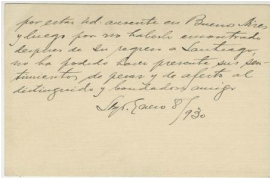 por estar Ud ausente en Buenos Aires
y luego por no haberle encontrado
despues de su regreso a Santiago,
no ha podido hacer presente sus sen-
timientos de pesar y de afecto al
distinguido y bondadoso amigo
Stgo. Enero 8/930